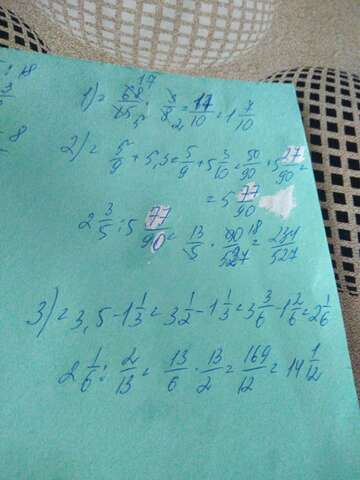 : 18
8
1) = 68/15 17 5 · 3/8 2 = 17/10 = 1 7/10
2) = 5/9 + 5,3 = 5/9 + 5 3/10 = 50/90 + 5 27/90 =
= 5 77/90
2 3/5 : 5 77/90 = 13/5 · 90/527 18 = 234/527
3) = 3,5 - 1 1/3 = 3 1/2 - 1 1/3 = 3 3/6 - 1 2/6 = 2 1/6
2 1/6 : 2/13 = 13/6 · 13/2 = 169/12 = 14 1/12